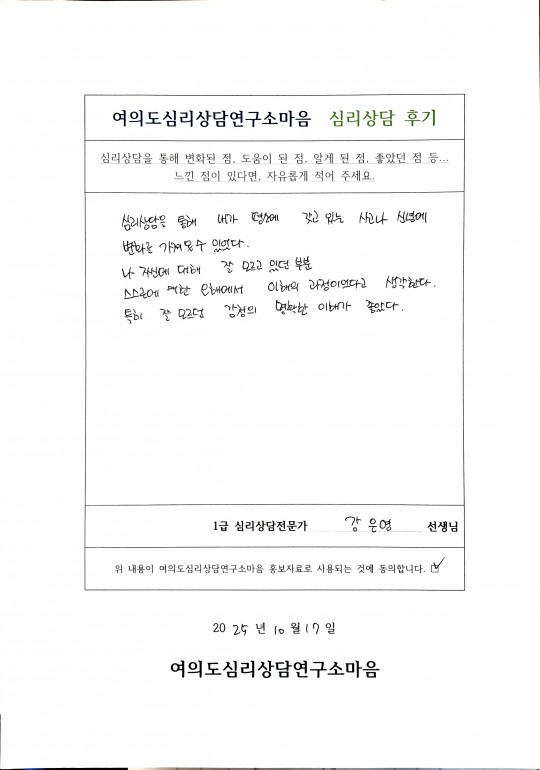 여의도심리상담연구소마음 심리상담 후기
심리상담을 통해 변화된 점, 도움이 된 점, 알게 된 점, 좋았던 점 등...
느낀 점이 있다면, 자유롭게 적어 주세요.
심리상담을 통해 내가 평소에 갖고 있는 사고나 신념에
변화를 가져올 수 있었다.
나 자신에 대해 잘 모르고 있던 부분
스스로에 대한 오해에서 이해의 과정이었다고 생각한다.
특히 잘 모르던 감정의 명확한 이해가 좋았다.
1급 심리상담전문가 강은영 선생님
위 내용이 여의도심리상담연구소마음 홍보자료로 사용되는 것에 동의합니다. ☑
2025년 10월 17일
여의도심리상담연구소마음